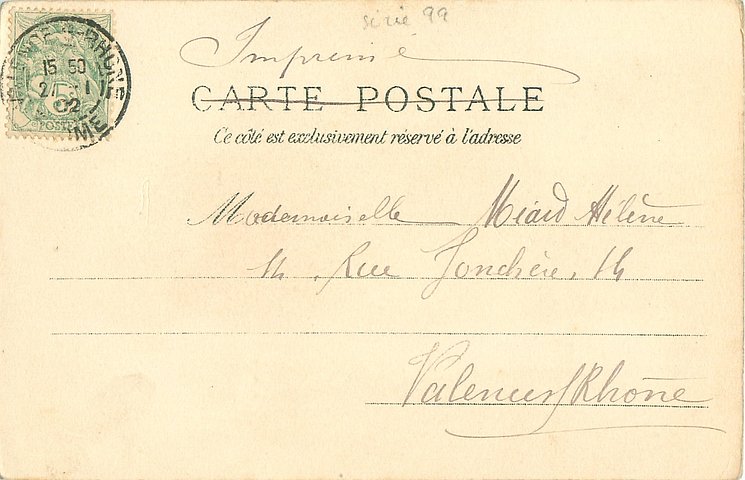 série 99
Imprimé
CARTE POSTALE
Ce côté est exclusivement réservé à l'adresse
VALENCE-S-RHONE
15 50
21 -1
02
DROME
5
POSTES
Mademoiselle Miard Hélène
14, Rue Jonchère, 14
Valence s/Rhône